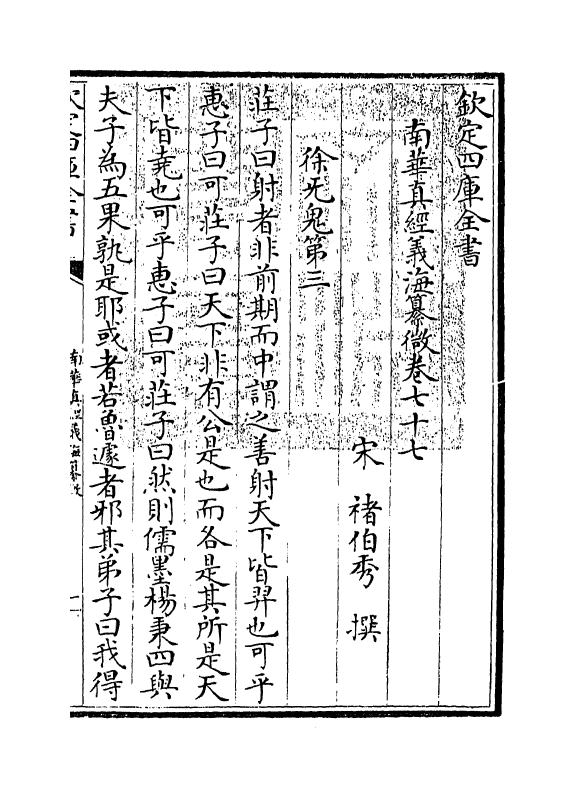 欽定四庫全書
南華真經義海纂微卷七十七
宋 褚伯秀 撰
徐无鬼第三
莊子曰射者非前期而中謂之善射天下皆羿也可乎
惠子曰可莊子曰天下非有公是也而各是其所是天
下皆堯也可乎惠子曰可莊子曰然則儒墨楊秉四與
夫子為五果孰是耶或者若魯遽者邪其弟子曰我得
南華真經義海纂微